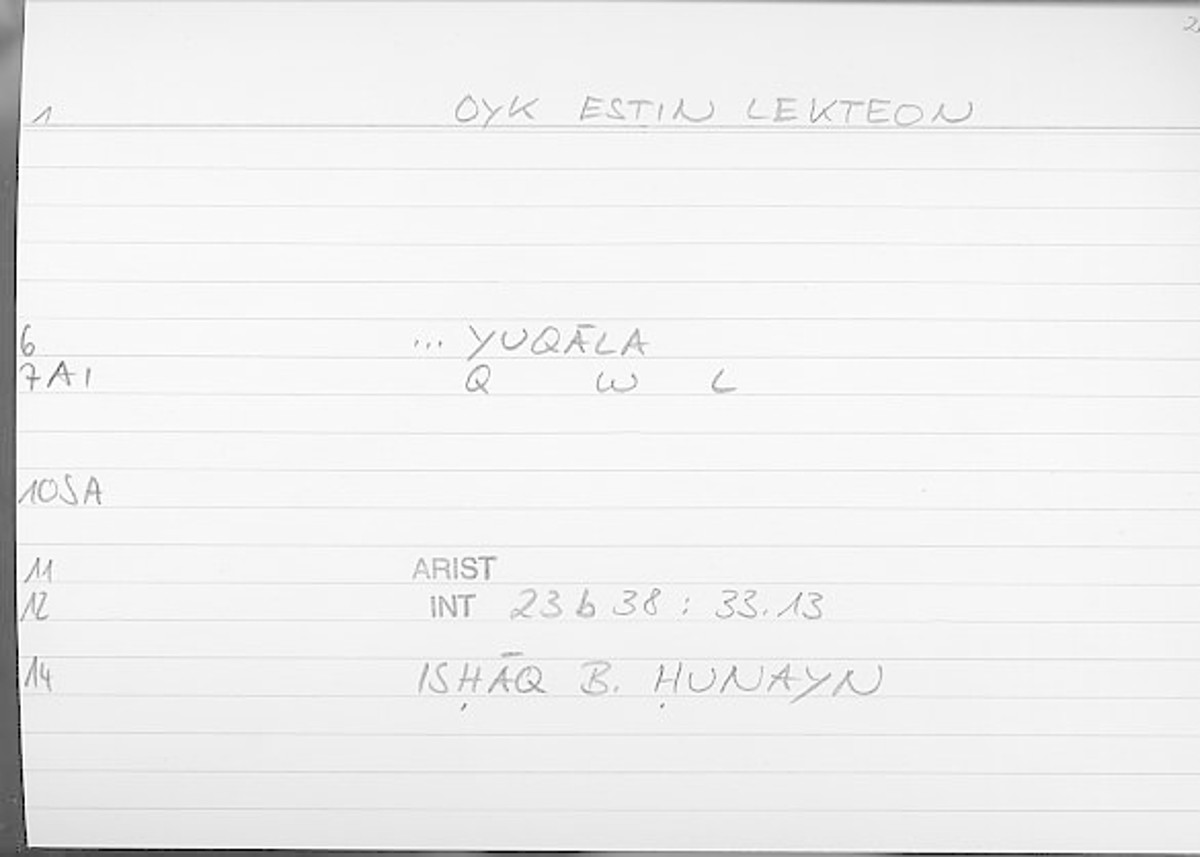 1 OYK ESTIN LEKTEON
6 ... YUQĀLA
7A1 Q W L
10SA
11 ARIST
12 INT 23 b 38 : 33.13
14 ISḤĀQ B. ḤUNAYN